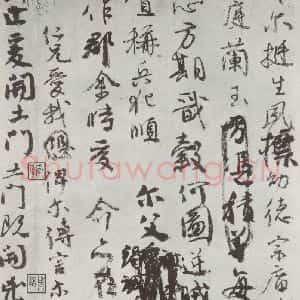 尔挺生夙標幼德宗庿
庭蘭玉方憑積善每
心方期戩穀何圖逆賊
稱兵犯順尔父
作郡余時受命亦在
仁兄愛我俾尔傳言尔
止爰開土門土門既開凶
Shufawang.cn